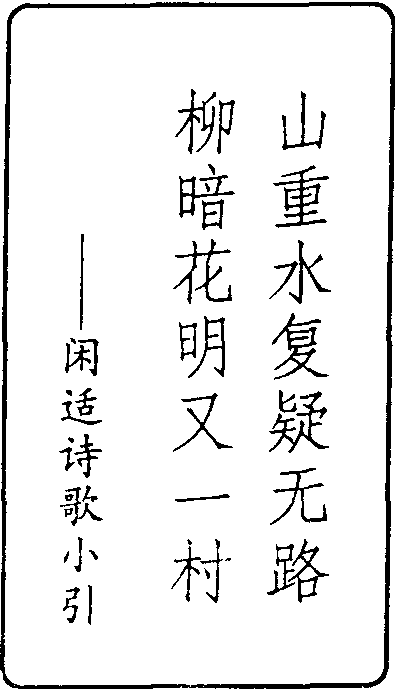 山重水复疑无路
柳暗花明又一村
——闲适诗歌小引